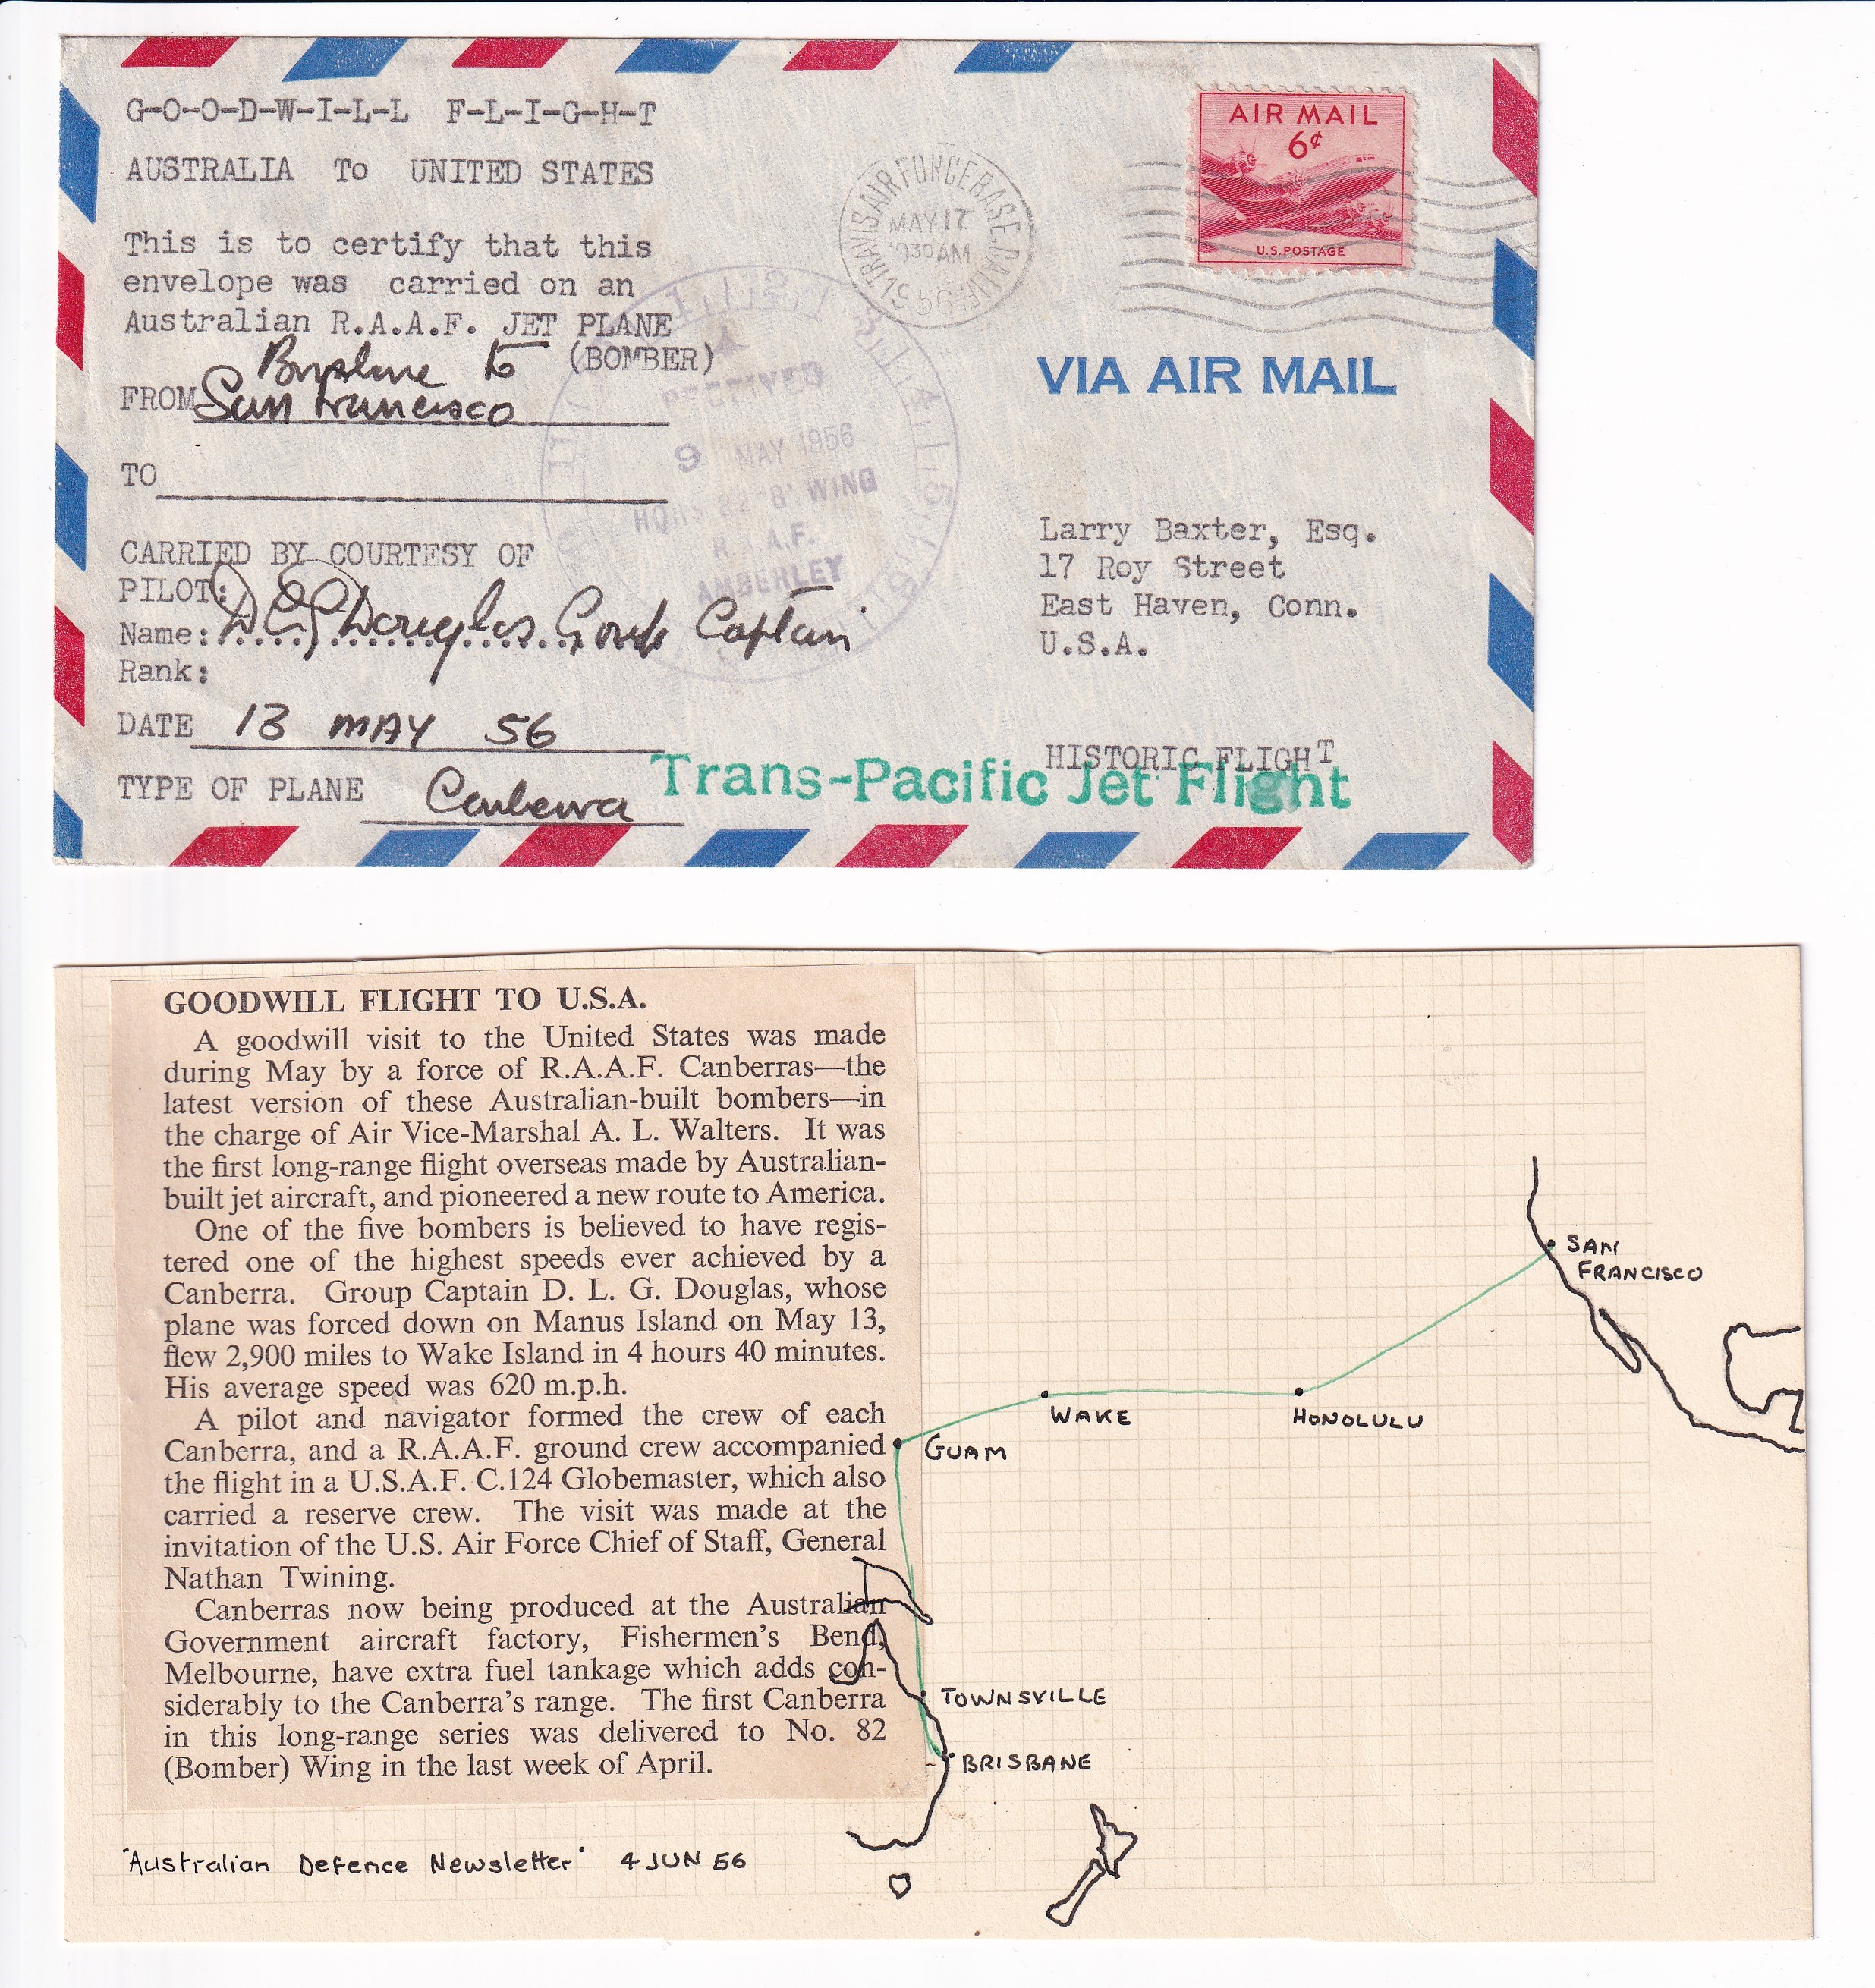 G-O-O-D-W-I-L-L F-L-I-G-H-T
AUSTRALIA To UNITED STATES
This is to certify that this
envelope was carried on an
Australian R.A.A.F. JET PLANE
(BOMBER)
Brisbane to
FROM San Francisco
TO
CARRIED BY COURTESY OF
PILOT:
Name: D L G Douglas Group Captain
Rank:
DATE 13 MAY 56
TYPE OF PLANE Canberra
TRAVIS AIR FORCE BASE, CALIF.
MAY 17
1956
RECEIVED
9 MAY 1956
HQRS 82 'B' WING
R.A.A.F.
AMBERLEY
AIR MAIL
6¢
U.S. POSTAGE
VIA AIR MAIL
Larry Baxter, Esq.
17 Roy Street
East Haven, Conn.
U.S.A.
HISTORIC FLIGHT
Trans-Pacific Jet Flight
GOODWILL FLIGHT TO U.S.A.
A goodwill visit to the United States was made
during May by a force of R.A.A.F. Canberras—the
latest version of these Australian-built bombers—in
the charge of Air Vice-Marshal A. L. Walters. It was
the first long-range flight overseas made by Australian-
built jet aircraft, and pioneered a new route to America.
One of the five bombers is believed to have regis-
tered one of the highest speeds ever achieved by a
Canberra. Group Captain D. L. G. Douglas, whose
plane was forced down on Manus Island on May 13,
flew 2,900 miles to Wake Island in 4 hours 40 minutes.
His average speed was 620 m.p.h.
A pilot and navigator formed the crew of each
Canberra, and a R.A.A.F. ground crew accompanied
the flight in a U.S.A.F. C.124 Globemaster, which also
carried a reserve crew. The visit was made at the
invitation of the U.S. Air Force Chief of Staff, General
Nathan Twining.
Canberras now being produced at the Australian
Government aircraft factory, Fishermen's Bend,
Melbourne, have extra fuel tankage which adds con-
siderably to the Canberra's range. The first Canberra
in this long-range series was delivered to No. 82
(Bomber) Wing in the last week of April.
"Australian Defence Newsletter" 4 JUN 56
SAN
FRANCISCO
WAKE
HONOLULU
GUAM
TOWNSVILLE
BRISBANE